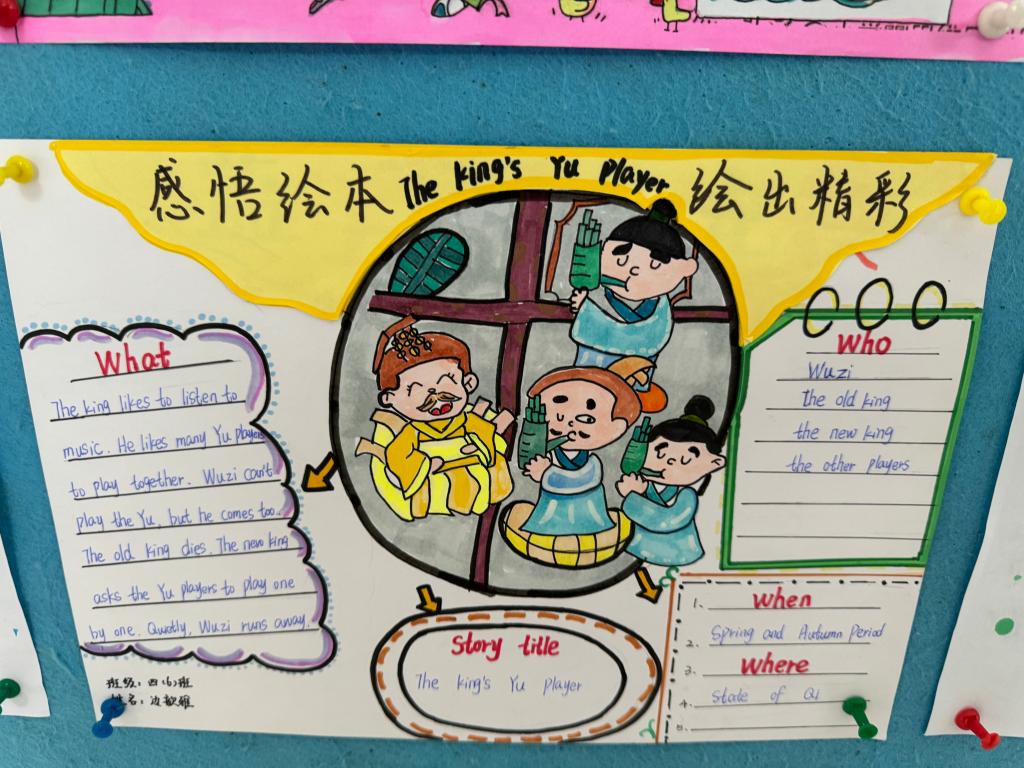 感悟绘本 The king's Yu player 绘出精彩
What
The king likes to listen to
music. He likes many Yu players
to play together. Wuzi can't
play the Yu, but he comes too.
The old king dies. The new king
asks the Yu players to play one
by one. Quietly, Wuzi runs away.
班级：四（6）班
姓名：
Story title
The king's Yu player
Who
Wuzi
the old king
the new king
the other players
1. When
2. Spring and Autumn Period
3. Where
4. State of Qi
5.